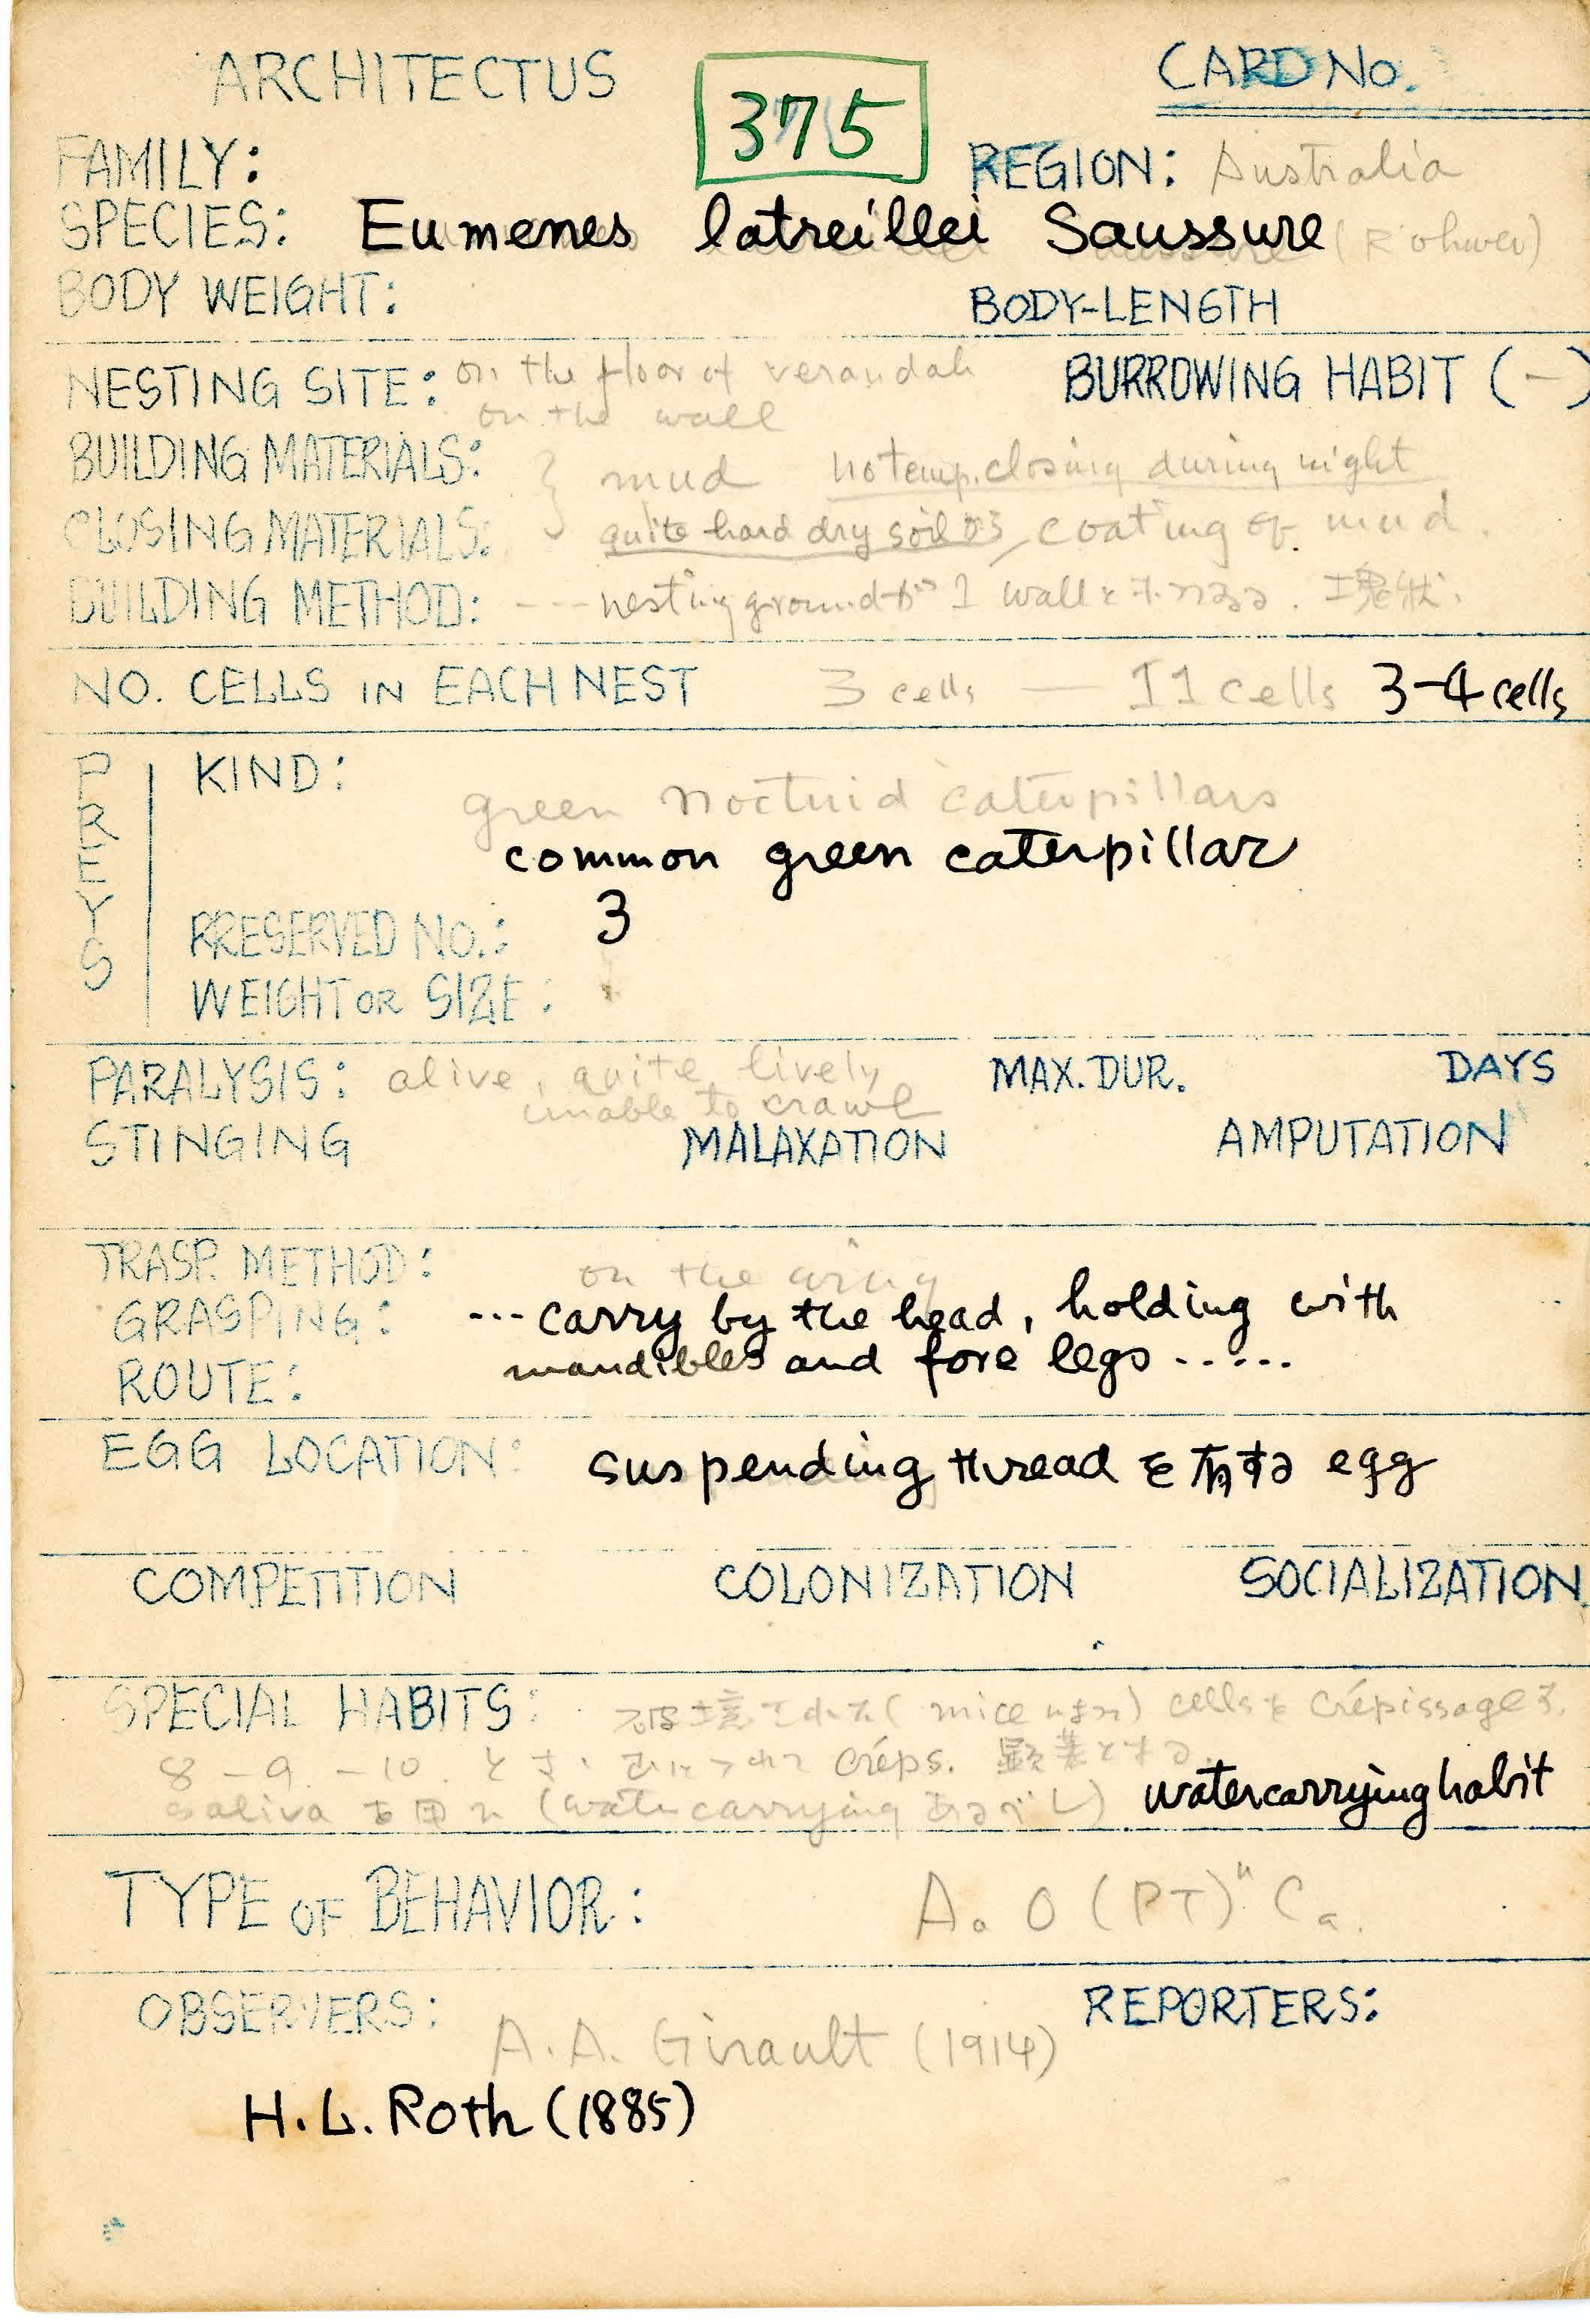 ARCHITECTUS 375 CARD NO.
FAMILY: REGION: Australia
SPECIES: Eumenes latreillei Saussure (Rohwer)
BODY WEIGHT: BODY-LENGTH
NESTING SITE: on the floor of verandah BURROWING HABIT (-)
on the wall
BUILDING MATERIALS: } mud no temp. closing during night
CLOSING MATERIALS: quite hard dry soil coating of mud.
BUILDING METHOD: --- nesting ground が 1 wall
NO. CELLS IN EACH NEST 3 cells — 11 cells 3-4 cells
PREYS
KIND: green noctuid caterpillars
common green caterpillar
PRESERVED NO.: 3
WEIGHT OR SIZE:
PARALYSIS: alive, quite lively MAX. DUR. DAYS
unable to crawl
STINGING MALAXATION AMPUTATION
TRASP. METHOD: on the wing
GRASPING: ... carry by the head, holding with
mandibles and fore legs ......
ROUTE:
EGG LOCATION: suspending thread を有する egg
COMPETITION COLONIZATION SOCIALIZATION
SPECIAL HABITS: (mice cells を crépissage
8-9-10. créps. 顕著とする.
saliva を用い (water carrying あるべし) water carrying habit
TYPE OF BEHAVIOR: A. O (PT)ⁿ Ca.
OBSERVERS: A. A. Girault (1914) REPORTERS:
H. L. Roth (1885)